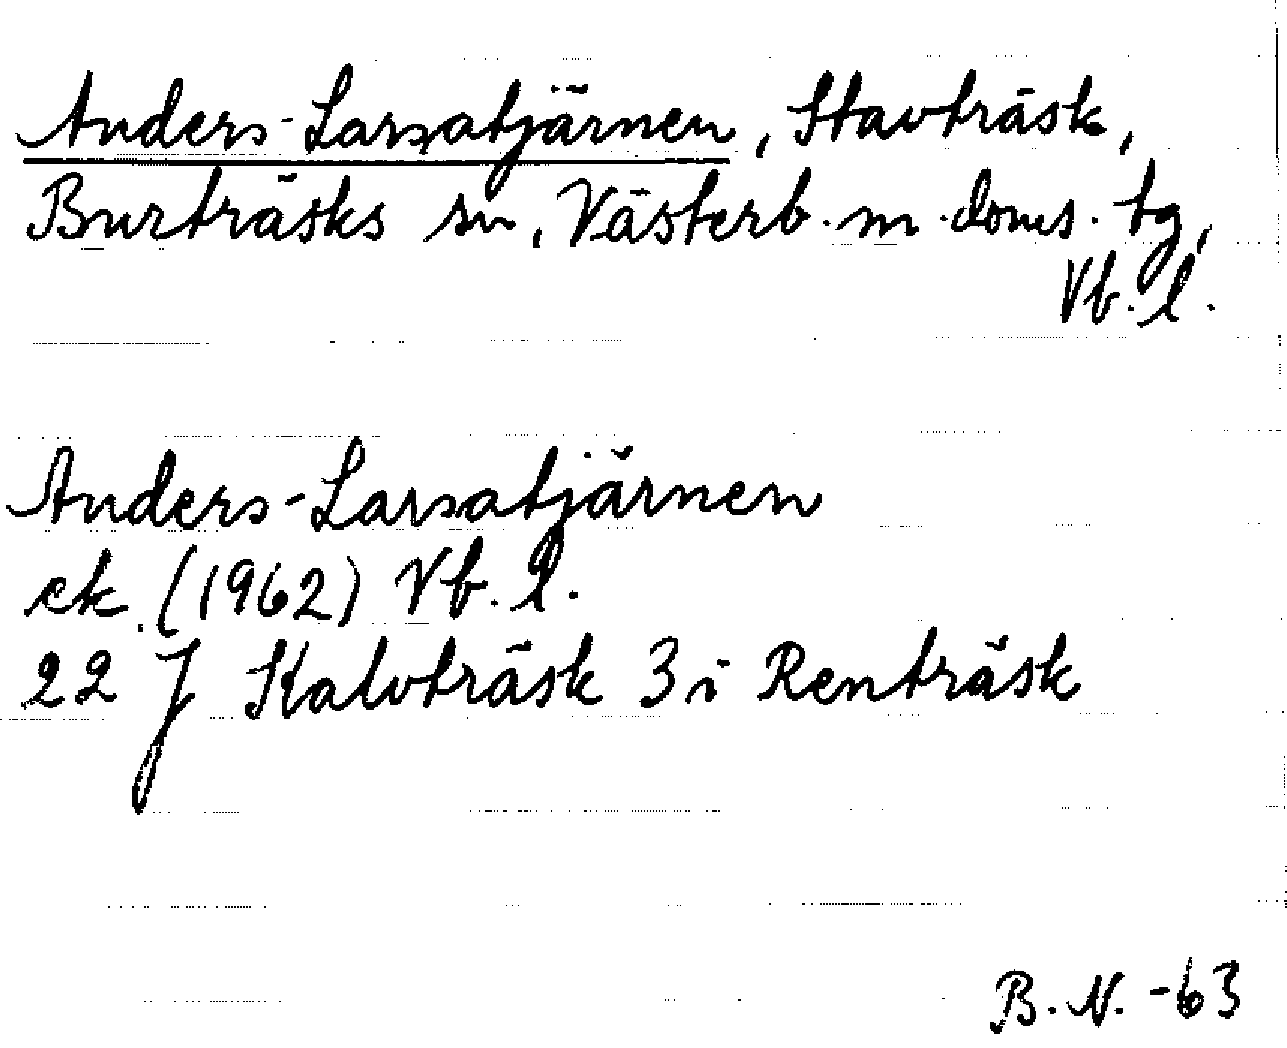 Anders-Larsatjärnen, Stavträsk,
Burträsks sn, Västerb. m. doms. tg,
Vb. l.
Anders-Larsatjärnen
ek. (1962) Vb. l.
22 J Kalvträsk 3 i Renträsk
B. N. -63